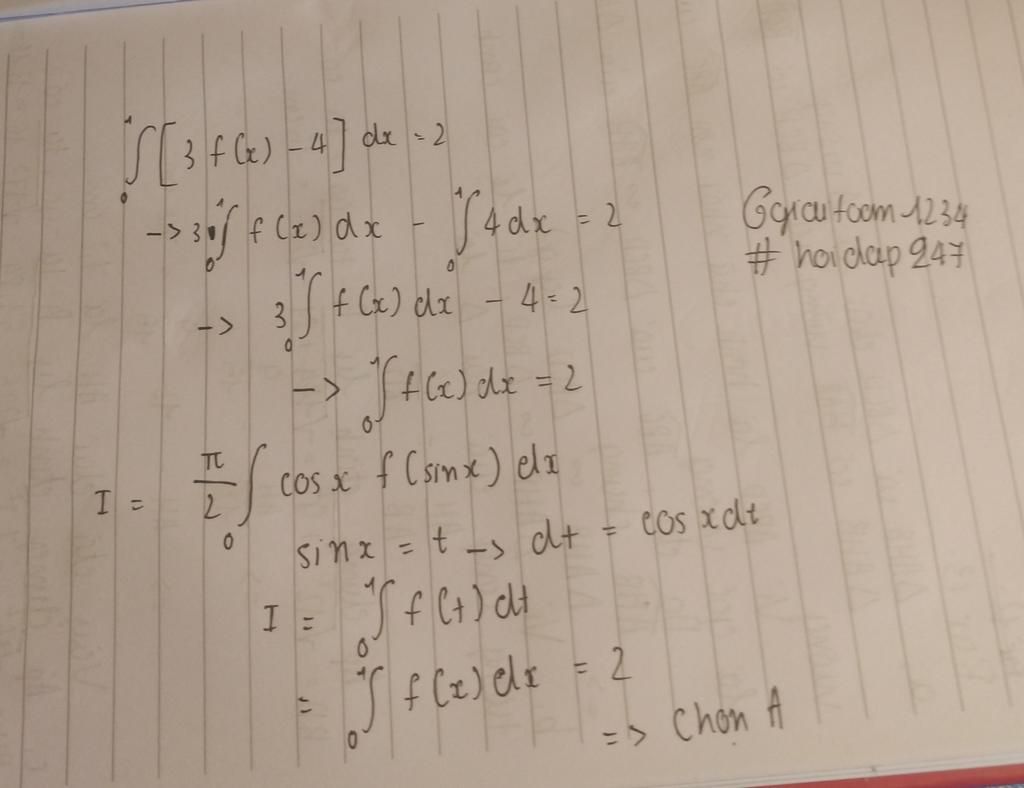 ∫₀¹ [3 f(x) - 4] dx = 2
-> 3 ∫₀¹ f(x) dx - ∫₀¹ 4 dx = 2
-> 3 ∫₀¹ f(x) dx - 4 = 2
-> ∫₀¹ f(x) dx = 2
I = ∫₀^(π/2) cos x f(sin x) dx
sin x = t -> dt = cos x dt
I = ∫₀¹ f(t) dt
= ∫₀¹ f(x) dx = 2
=> Chọn A
# hoidap 247